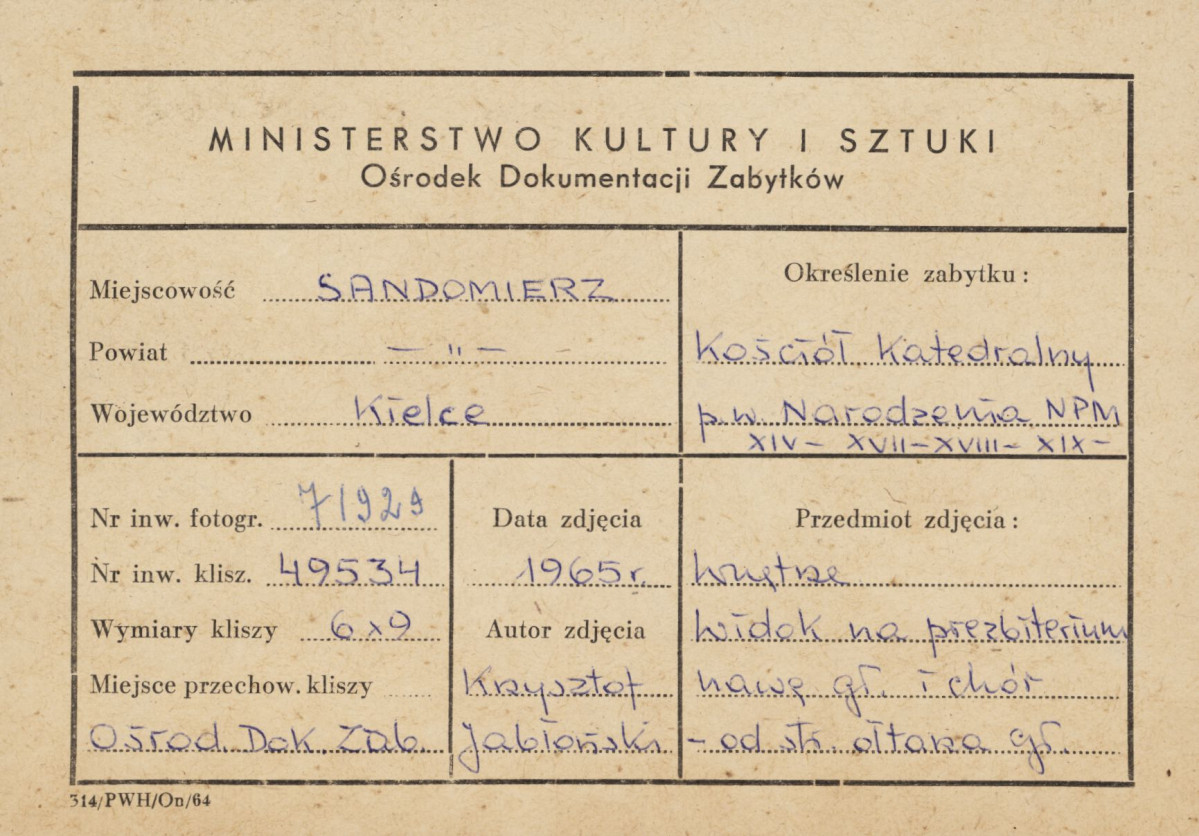 MINISTERSTWO KULTURY I SZTUKI
Ośrodek Dokumentacji Zabytków
Miejscowość SANDOMIERZ
Powiat — " —
Województwo Kielce
Określenie zabytku:
Kościół Katedralny
p.w. Narodzenia NPM
XIV - XVII - XVIII - XIX -
Nr inw. fotogr. 71929
Nr inw. klisz. 49534
Wymiary kliszy 6x9
Miejsce przechow. kliszy
Ośrod. Dok. Zab.
Data zdjęcia
1965 r.
Autor zdjęcia
Krzysztof
Jabłoński
Przedmiot zdjęcia:
Wnętrze
Widok na prezbiterium
nawę gł. i chór
- od str. ołtarza gł.
314/PWH/On/64